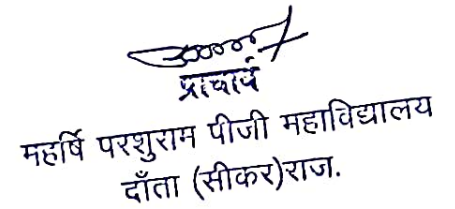 प्राचार्य
महर्षि परशुराम पीजी महाविद्यालय
दाँता (सीकर)राज.